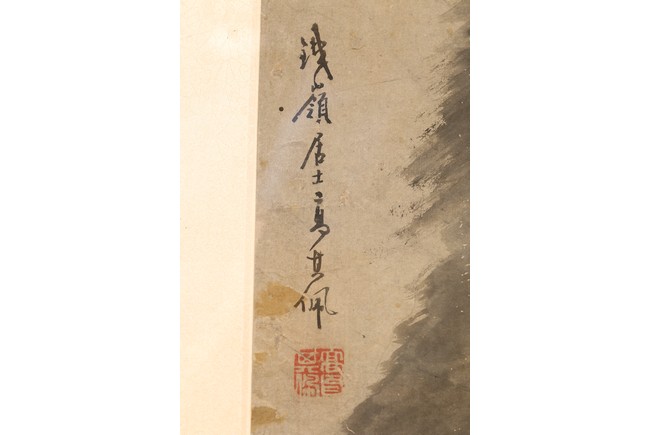 鐵嶺居士高其佩